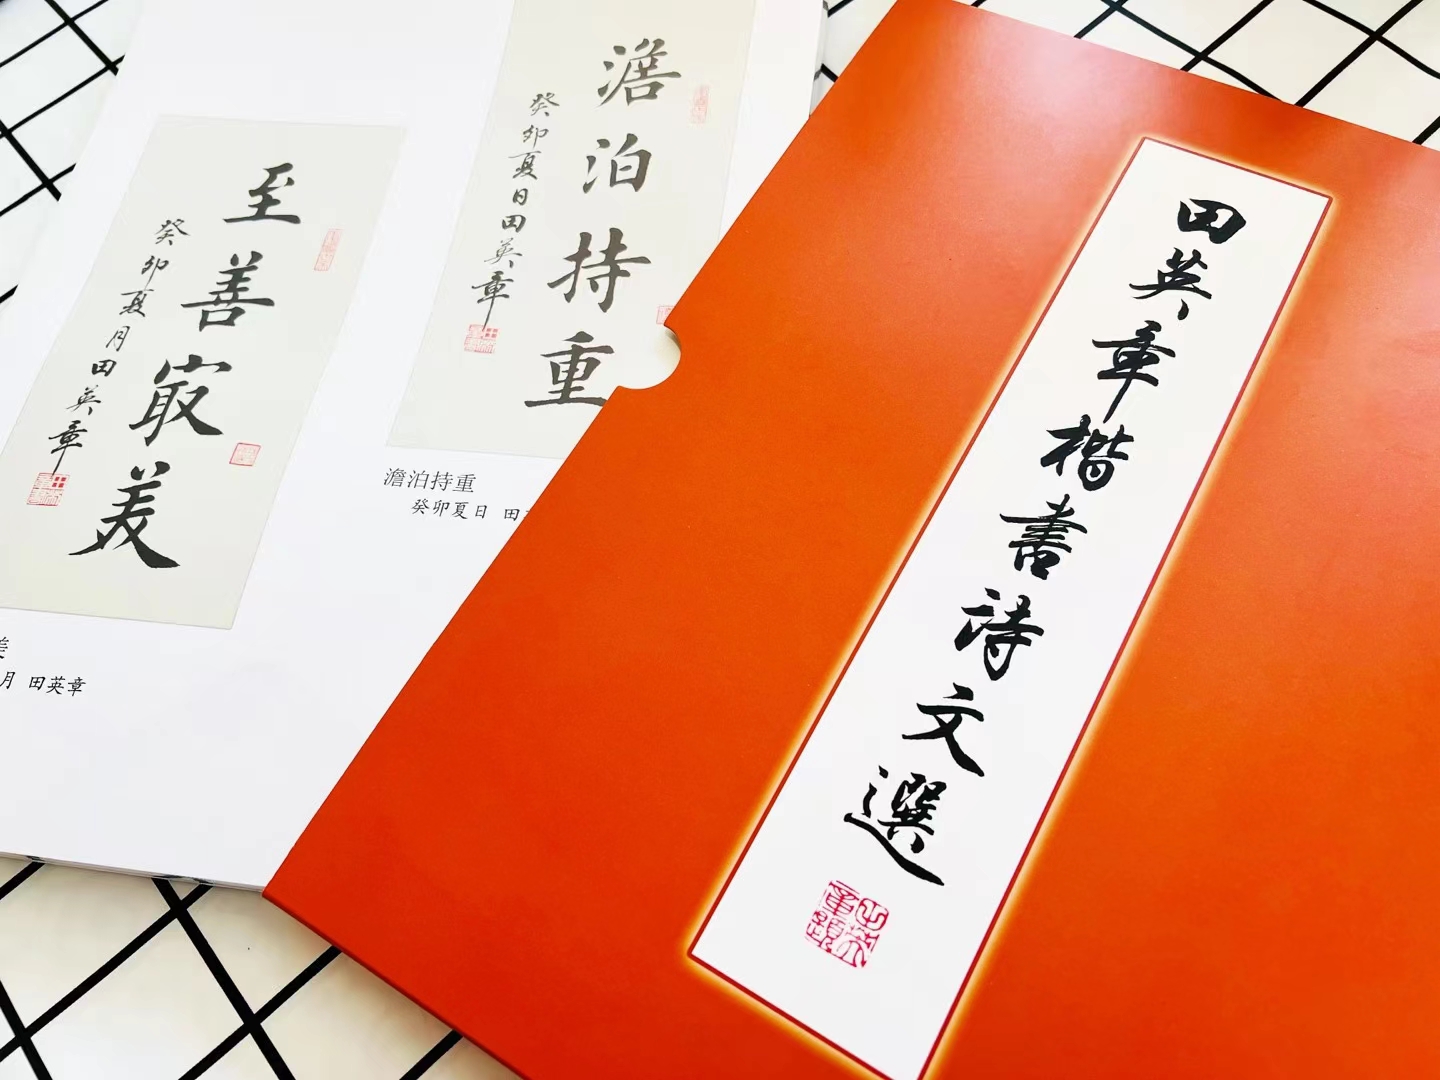 田英章楷書詩文選
澹泊持重
癸卯夏日田英章
澹泊持重
癸卯夏日 田
至善㝡美
癸卯夏月田英章
美
月 田英章